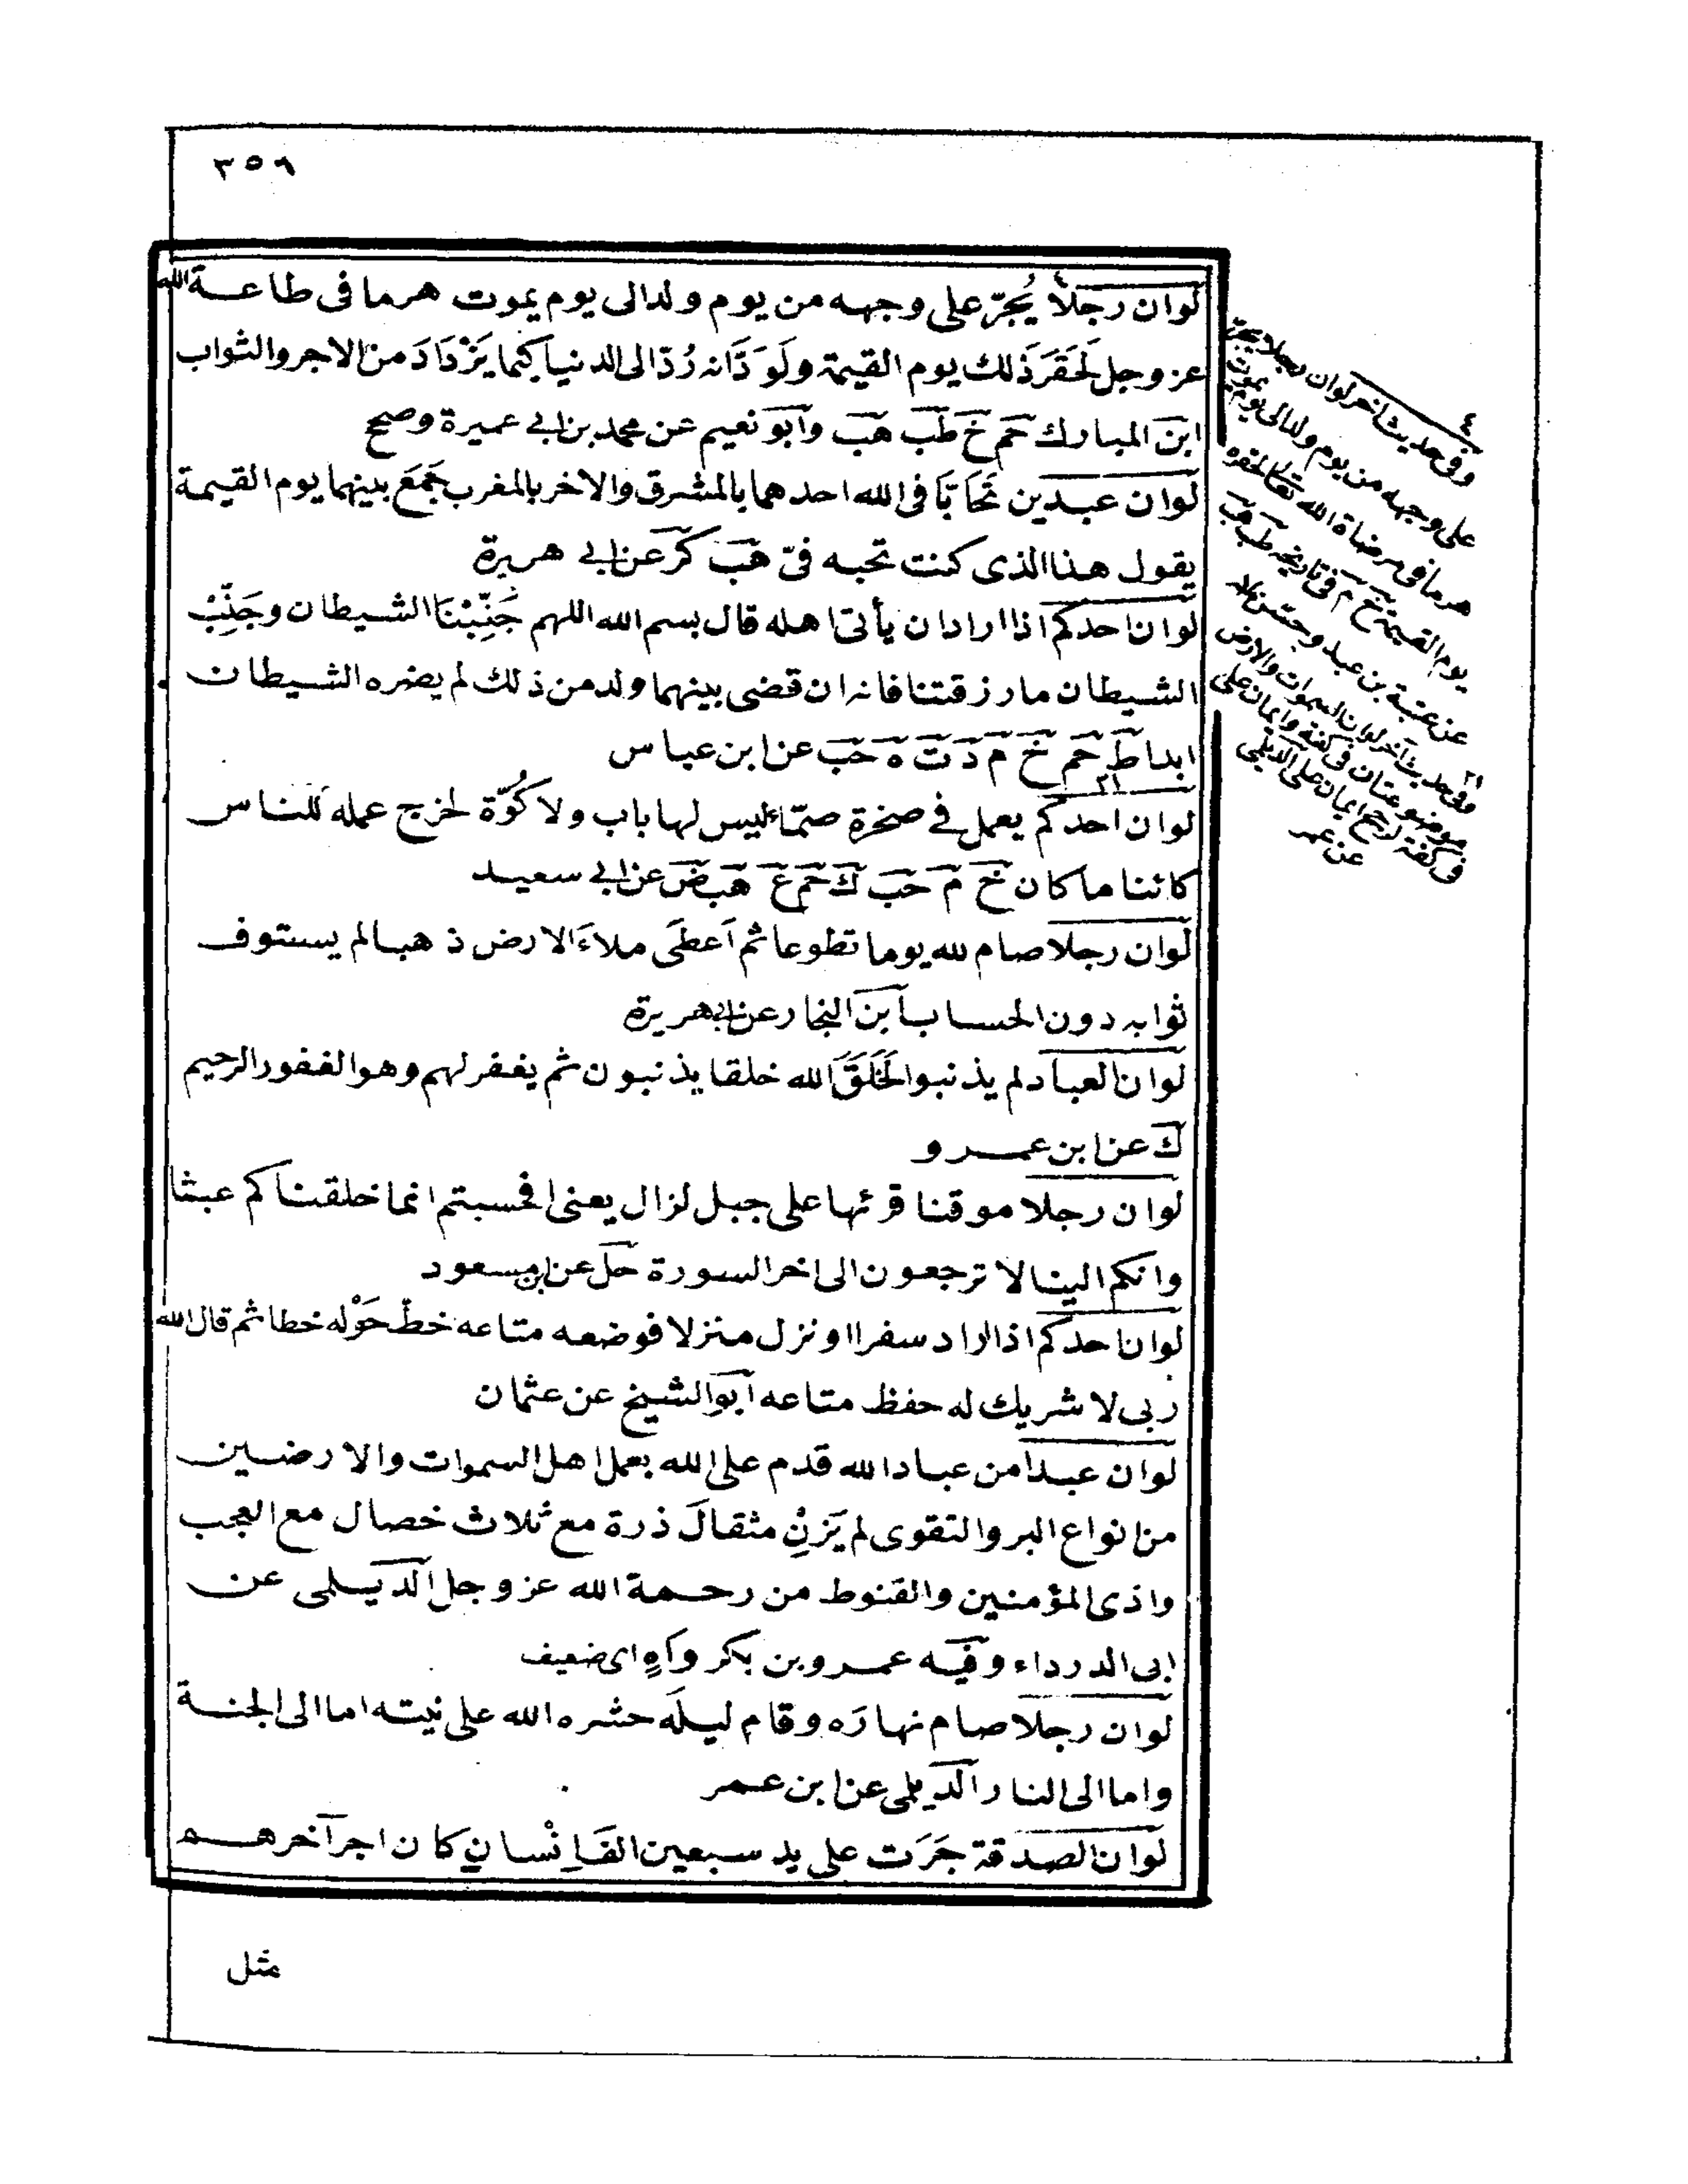 ٣٥٩
لوان رجلاً يُجَرّ على وجهه من يوم ولد الى يوم يموت هرما فى طاعة الله
عز وجل لَحَقَرَ ذَلك يوم القيمة ولَوَدَّ انه رُدّ الى الدنيا كيما يَزْدَادَ من الاجر والثواب
ابن المبارك حم خ طب هب وابو نعيم عن محمد بن ابى عميرة وصح
لوان عبدين تَحَابَّا فى الله احدهما بالمشرق والاخر بالمغرب جَمَعَ بينهما يوم القيمة
يقول هذا الذى كنت تحبه فىّ هب كر عن ابى هريرة
لوان احدكم اذا اراد ان يأتى اهله قال بسم الله اللهم جَنِّبْنَا الشيطان وجَنِّبْ
الشيطان ما رزقتنا فانه ان قضى بينهما ولد من ذلك لم يضره الشيطان
ابدا ط حم خ م د ت ه حب عن ابن عباس
لوان احدكم يعمل فى صخرة صمّاء ليس لها باب ولا كُوّة لخرج عمله للناس
كائنا ما كان خ م حب ك حم ع هب ض عن ابى سعيد
لوان رجلا صام لله يوما تطوعا ثم اَعطَى ملاءَ الارض ذهبا لم يستوف
ثوابه دون الحساب ابن النجار عن ابى هريرة
لوان العباد لم يذنبوا لَخَلَقَ الله خلقا يذنبون ثم يغفر لهم وهو الغفور الرحيم
ك عن ابن عمرو
لوان رجلا موقنا قرئها على جبل لزال يعنى افحسبتم انما خلقناكم عبثا
وانكم الينا لا ترجعون الى اخر السورة حل عن ابن مسعود
لوان احدكم اذا اراد سفرا او نزل منزلا فوضعه متاعه خط حَوْله خطا ثم قال الله
ربى لا شريك له حفظ متاعه ابو الشيخ عن عثمان
لوان عبدا من عباد الله قدم على الله بعمل اهل السموات والارضين
من انواع البر والتقوى لم يَزِنْ مثقالَ ذرة مع ثلاث خصال مع العجب
واذى المؤمنين والقنوط من رحمة الله عز وجل الديلمى عن
ابى الدرداء وفيه عمرو بن بكر واهٍ اى ضعيف
لوان رجلا صام نهارَه وقام ليلَه حشره الله على نيته اما الى الجنة
واما الى النار الديلمى عن ابن عمر
لوان الصدقة جَرَت على يد سبعين الفَ اِنْسانٍ كان اجر آخرهم
مثل
٤
وفى حديث اخر لوان رجلا يجرّ
على وجهه من يوم ولد الى يوم يموت
هرما فى مرضاة الله تعالى لحقره
يوم القيمة خ م فى تاريخه طب هب
عن عتبة بن عبد
وفى حديث آخر لوان السموات والارض
موضوعتان فى كفة وايمان على
فى كفة لرجح ايمان على الديلمى
عن عمر